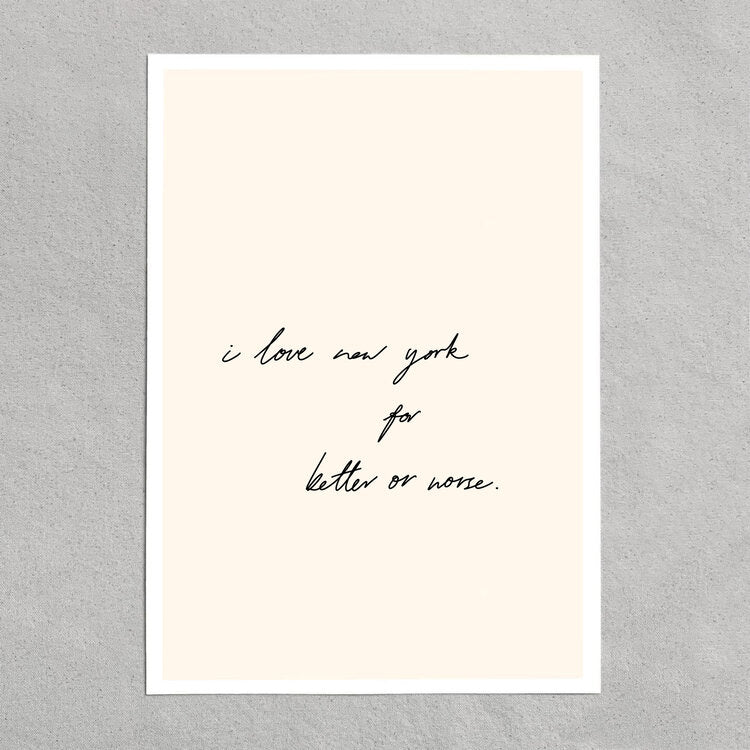 i love new york
for
better or worse.